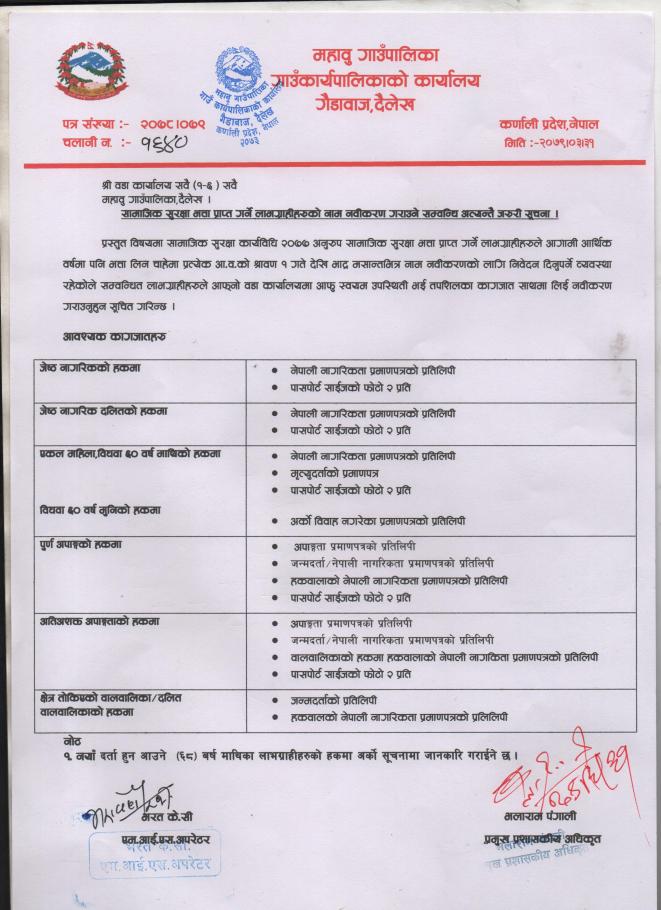 महावु गाउँपालिका
गाउँकार्यपालिकाको कार्यालय
गैडावाज,दैलेख
महावु गाउँपालिका
गाउँ कार्यपालिकाको कार्यालय
गैडावाज, दैलेख
कर्णाली प्रदेश, नेपाल
२०७३
पत्र संख्या :- २०७८।०७९
कर्णाली प्रदेश,नेपाल
चलानी न. :- १६४०
मिति :-२०७९।०३।३१
श्री वडा कार्यालय सवै (१-६) सवै
महावु गाउँपालिका,दैलेख ।
सामाजिक सुरक्षा भत्ता प्राप्त गर्ने लाभग्राहीहरुको नाम नवीकरण गराउने सम्वन्धि अत्यन्तै जरुरी सूचना ।
प्रस्तुत विषयमा सामाजिक सुरक्षा कार्यविधि २०७७ अनुरुप सामाजिक सुरक्षा भत्ता प्राप्त गर्ने लाभग्राहीहरुले आगामी आर्थिक
वर्षमा पनि भत्ता लिन चाहेमा प्रत्येक आ.व.को श्रावण १ गते देखि भाद्र मसान्तभित्र नाम नवीकरणको लागि निवेदन दिनुपर्ने व्यवस्था
रहेकोले सम्वन्धित लाभग्राहीहरुले आफ्नो वडा कार्यालयमा आफु स्वयम उपस्थिती भई तपशिलका कागजात साथमा लिई नवीकरण
गराउनुहुन सूचित गरिन्छ ।
आवश्यक कागजातहरु
जेष्ठ नागरिकको हकमा
• नेपाली नागरिकता प्रमाणपत्रको प्रतिलिपी
• पासपोर्ट साईजको फोटो २ प्रति
जेष्ठ नागरिक दलितको हकमा
• नेपाली नागरिकता प्रमाणपत्रको प्रतिलिपी
• पासपोर्ट साईजको फोटो २ प्रति
एकल महिला,विधवा ६० वर्ष माथिको हकमा
• नेपाली नागरिकता प्रमाणपत्रको प्रतिलिपी
• मृत्युदर्ताको प्रमाणपत्र
• पासपोर्ट साईजको फोटो २ प्रति
विधवा ६० वर्ष मुनिको हकमा
• अर्को विवाह नगरेका प्रमाणपत्रको प्रतिलिपी
पुर्ण अपाङ्गको हकमा
• अपाङ्गता प्रमाणपत्रको प्रतिलिपी
• जन्मदर्ता/नेपाली नागरिकता प्रमाणपत्रको प्रतिलिपी
• हकवालाको नेपाली नागरिकता प्रमाणपत्रको प्रतिलिपी
• पासपोर्ट साईजको फोटो २ प्रति
अतिअशक्त अपाङ्गताको हकमा
• अपाङ्गता प्रमाणपत्रको प्रतिलिपी
• जन्मदर्ता/नेपाली नागरिकता प्रमाणपत्रको प्रतिलिपी
• वालवालिकाको हकमा हकवालाको नेपाली नागकिता प्रमाणपत्रको प्रतिलिपी
• पासपोर्ट साईजको फोटो २ प्रति
क्षेत्र तोकिएको वालवालिका/दलित
वालवालिकाको हकमा
• जन्मदर्ताको प्रतिलिपी
• हकवालको नेपाली नागरिकता प्रमाणपत्रको प्रलिलिपी
नोट
१. नयाँ दर्ता हुन आउने (६८) बर्ष माथिका लाभग्राहीहरुको हकमा अर्को सूचनामा जानकारि गराईने छ ।
भरत के.सी
एम.आई.एस.अपरेटर
भरत के.सी.
एम.आई.एस.अपरेटर
भलाराम पंगाली
प्रमुख प्रशासकीय अधिकृत